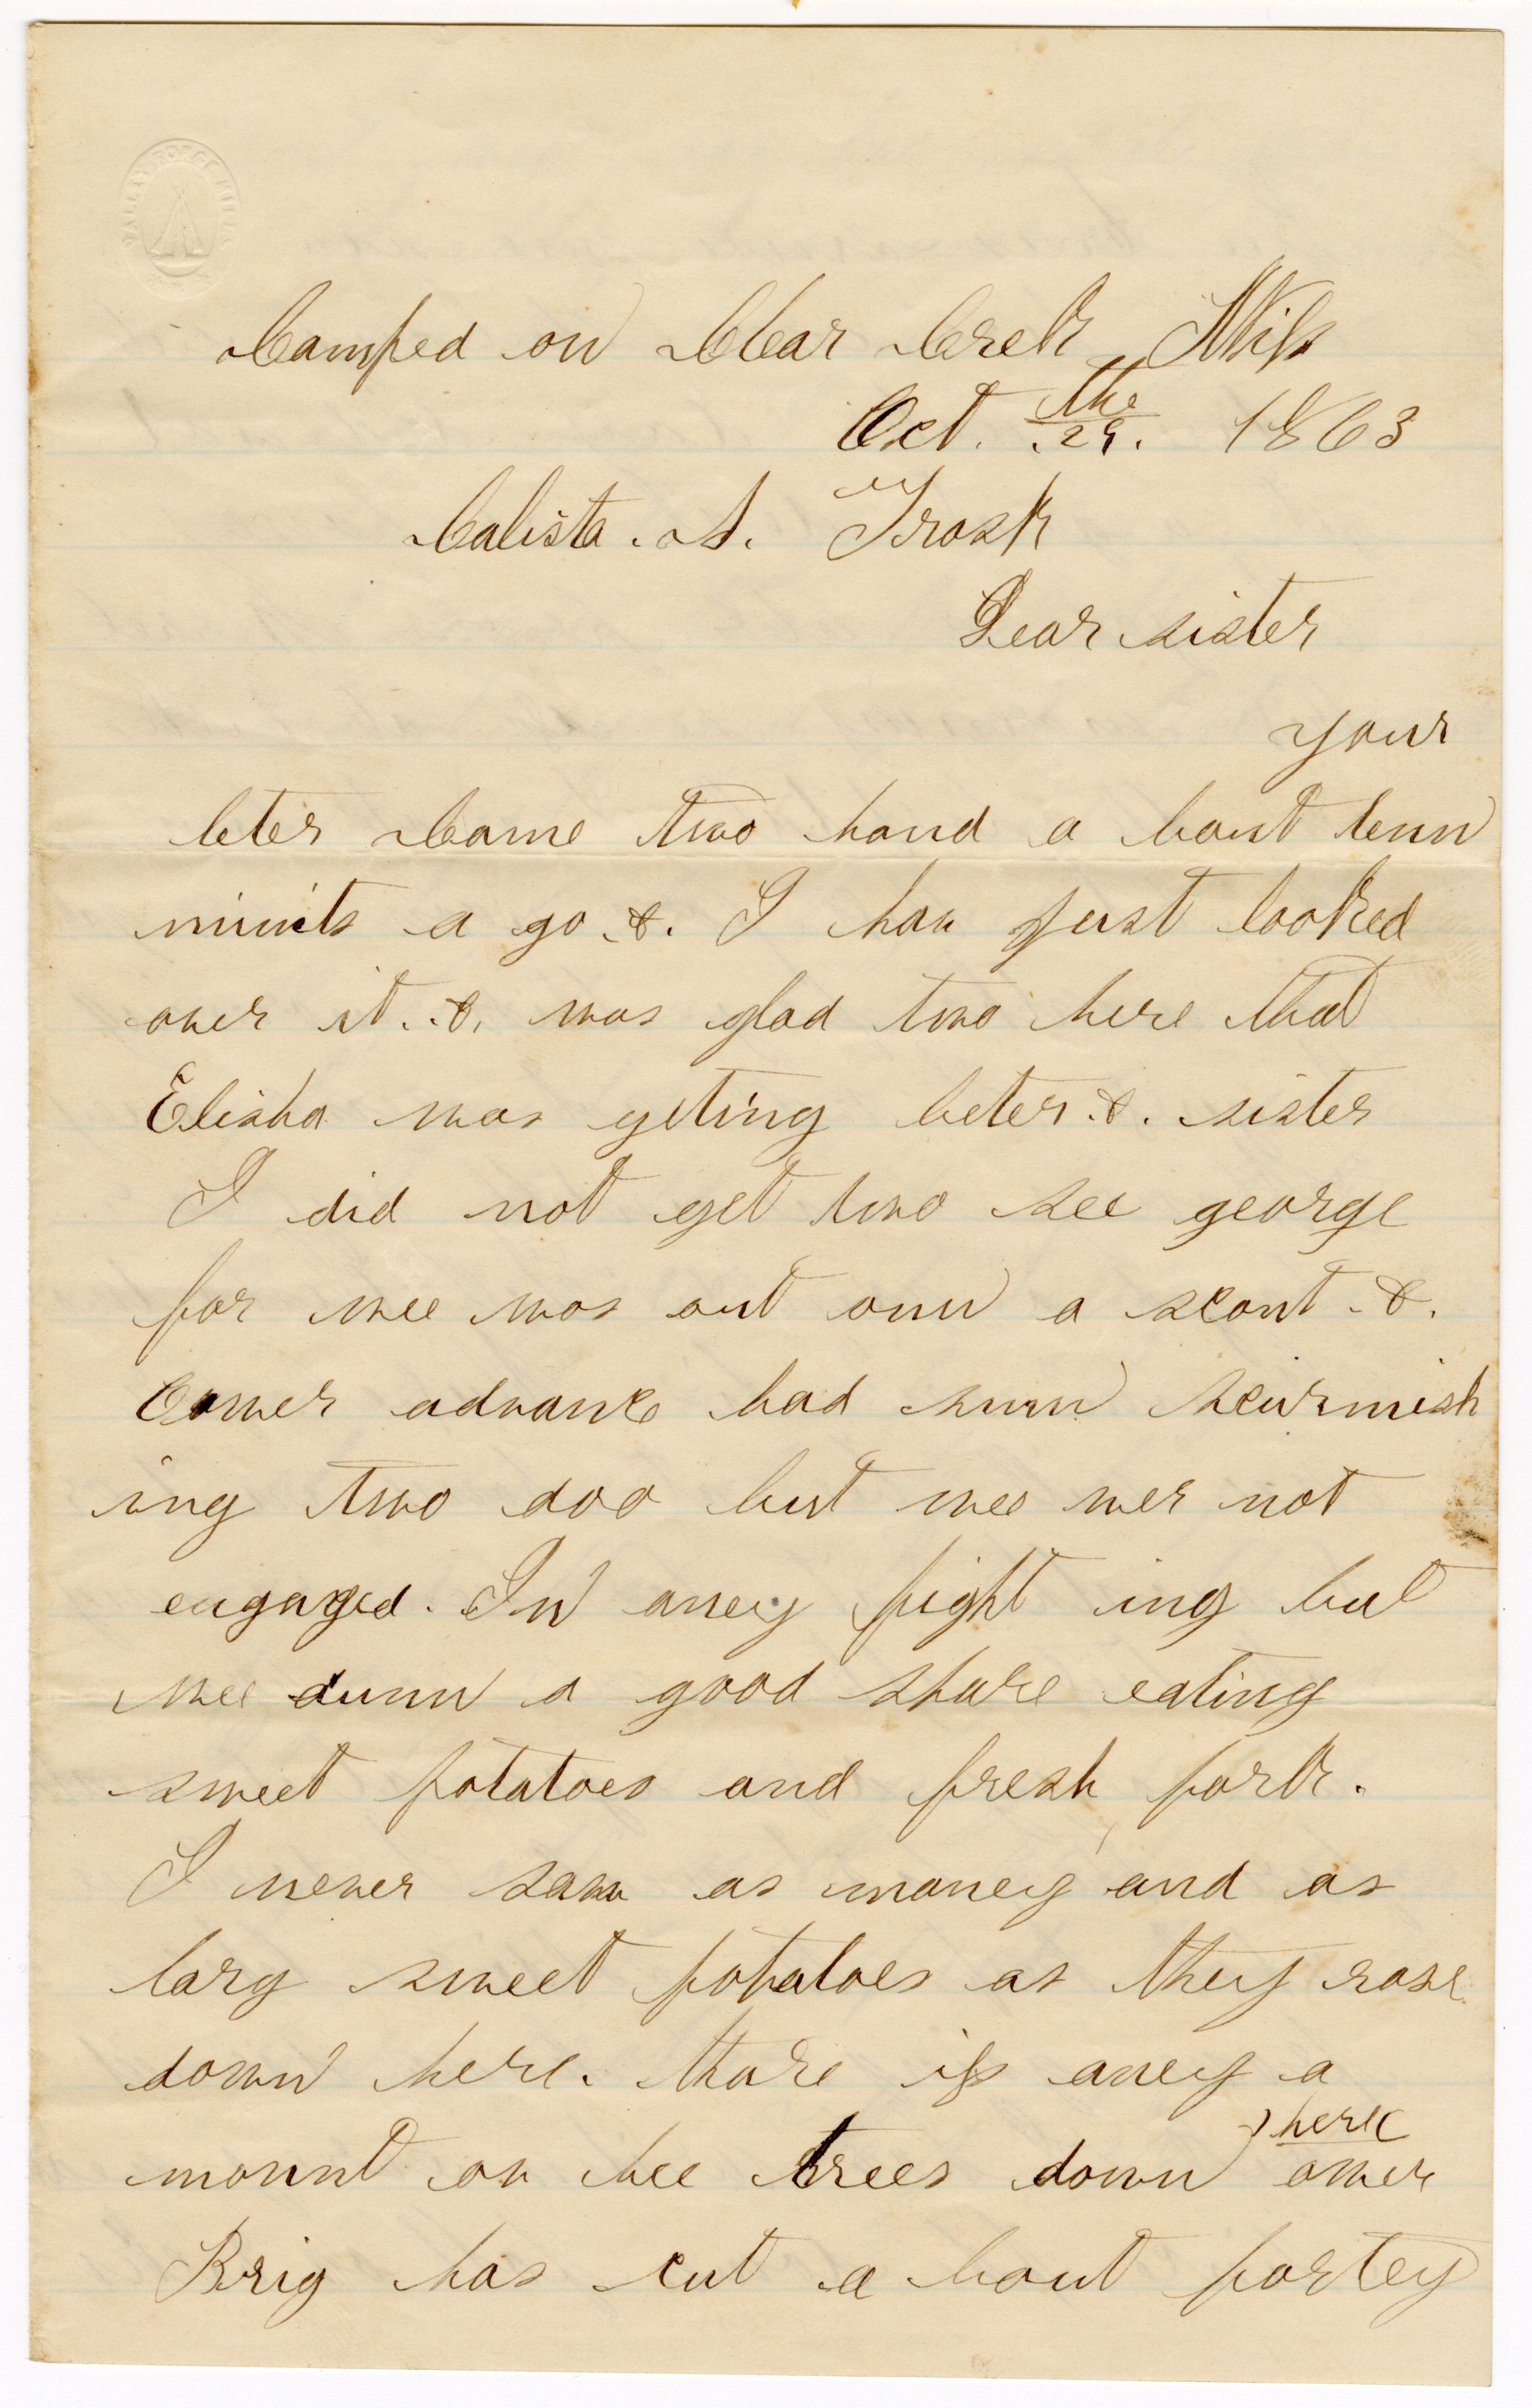 VALLEY FORGE MILLS
Camped on Clear Creek Miss
Oct. the 29. 1863
Calista. A. Trask
Dear sister
your
leter Came two hand a bout tenn
minits a go &. I hav just looked
over it. &. was glad two here that
Elisha was geting beter. &. sister
I did not get two see george
for wee was out onn a scout. &.
Ower advance had sum scirmish
ing two doo but wee wer not
engaged. In aney fight ing but
wee dunn a good share eating
sweet potatoes and fresh pork.
I never saw as maney and as
larg sweet potatoes as they rase
down here. thare is aney a
mount ov bee trees down here ower
Brig has cut a bout fortey